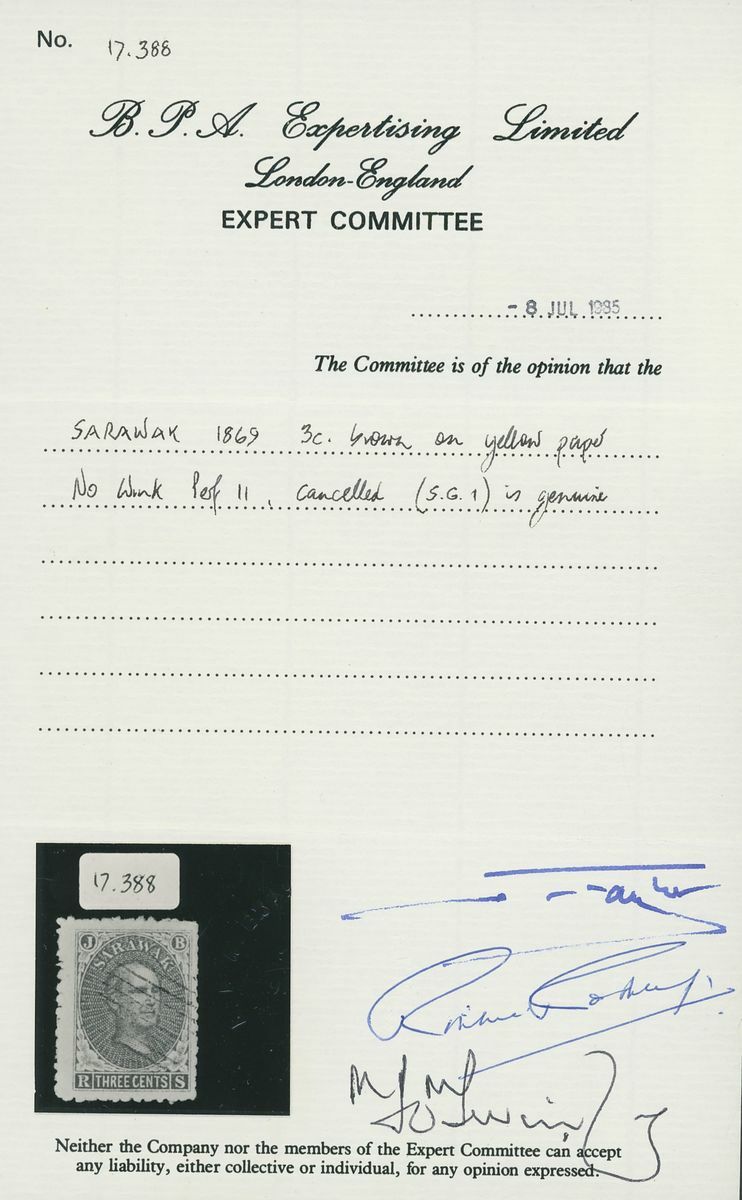 No. 17.388
B. P. A. Expertising Limited
London-England
EXPERT COMMITTEE
- 8 JUL 1985
The Committee is of the opinion that the
SARAWAK 1869 3c. brown on yellow paper
No Wmk Perf 11, cancelled (S.G. 1) is genuine
17.388
J B
SARAWAK
R THREE CENTS S
Neither the Company nor the members of the Expert Committee can accept
any liability, either collective or individual, for any opinion expressed.